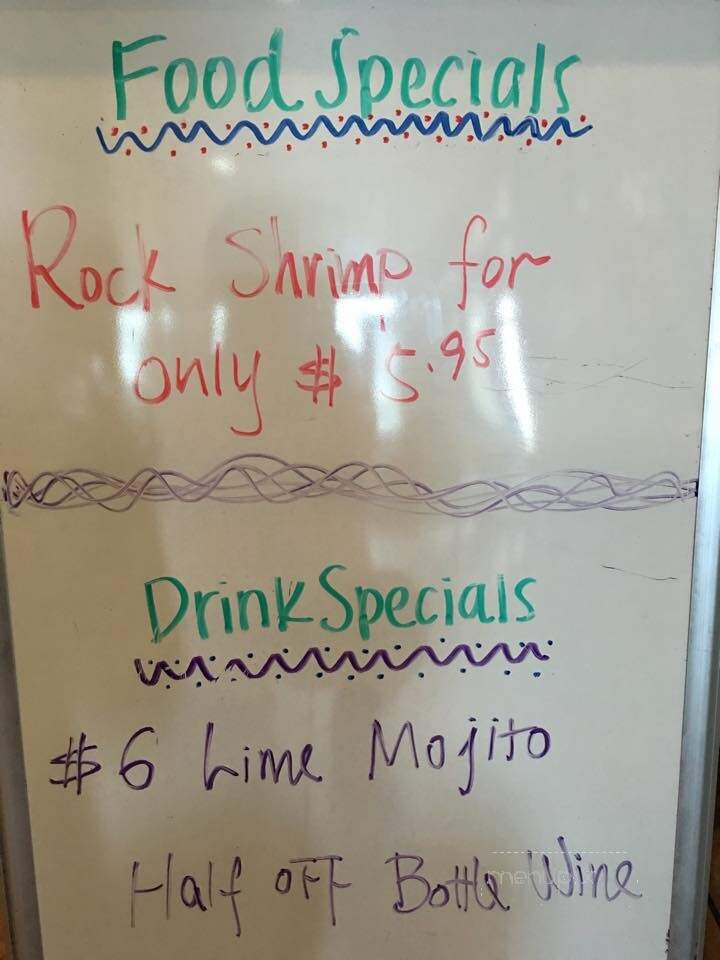 Food Specials
Rock Shrimp for
only $ 5.95
Drink Specials
$6 Lime Mojito
Half OFF Bottle Wine